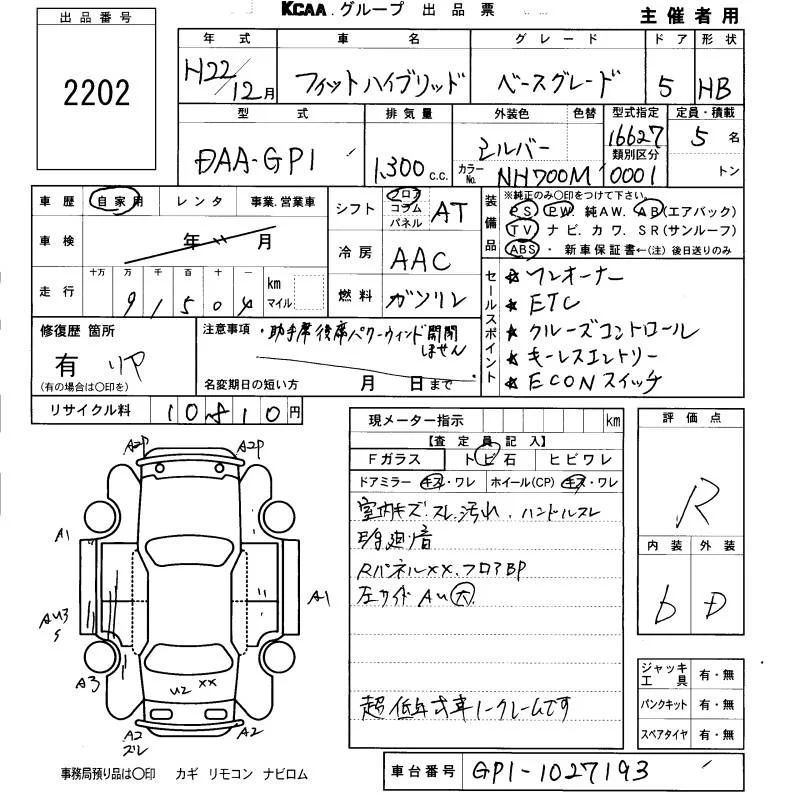 KCAA.グループ 出品票
主催者用
出品番号
2202
年式 車名 グレード ドア 形状
H22/12月 フィットハイブリッド ベースグレード 5 HB
型式 排気量 外装色 色替 型式指定 定員・積載
DAA-GP1 1,300 c.c. シルバー 16627 5名
カラーNo. NH700M 類別区分 0001 トン
車歴 自家用 レンタ 事業.営業車
シフト フロア コラム パネル AT
装備品
※純正のみ○印をつけて下さい。
PS PW 純AW. AB(エアバック)
TV ナビ. カワ. SR(サンルーフ)
ABS ・ 新車保証書←(注)後日送りのみ
車検 年 月
冷房 AAC
走行 十万 万 千 百 十 一 km マイル
91504
燃料 ガソリン
セールスポイント
★ ワンオーナー
★ ETC
★ クルーズコントロール
★ キーレスエントリー
★ ECONスイッチ
修復歴 箇所
有 リア
(有の場合は○印を)
注意事項 ・助手席後席パワーウィンド開閉
しません
名変期日の短い方 月 日まで
リサイクル料 10810円
現メーター指示 km
【査定員記入】
Fガラス トビ石 ヒビワレ
ドアミラー キズ・ワレ ホイール(CP) キズ・ワレ
室内キズ.スレ.汚れ.ハンドルスレ
Rパネルxx.フロアBP
左サイドAU大
超低年式車ノークレームです
評価点
R
内装 外装
b D
ジャッキ 工具 有・無
パンクキット 有・無
スペアタイヤ 有・無
A2P A2P
A1
A1
AU3
S
A3
U2 xx
A2
ズレ
A2
事務局預り品は○印 カギ リモコン ナビロム
車台番号 GP1-1027193